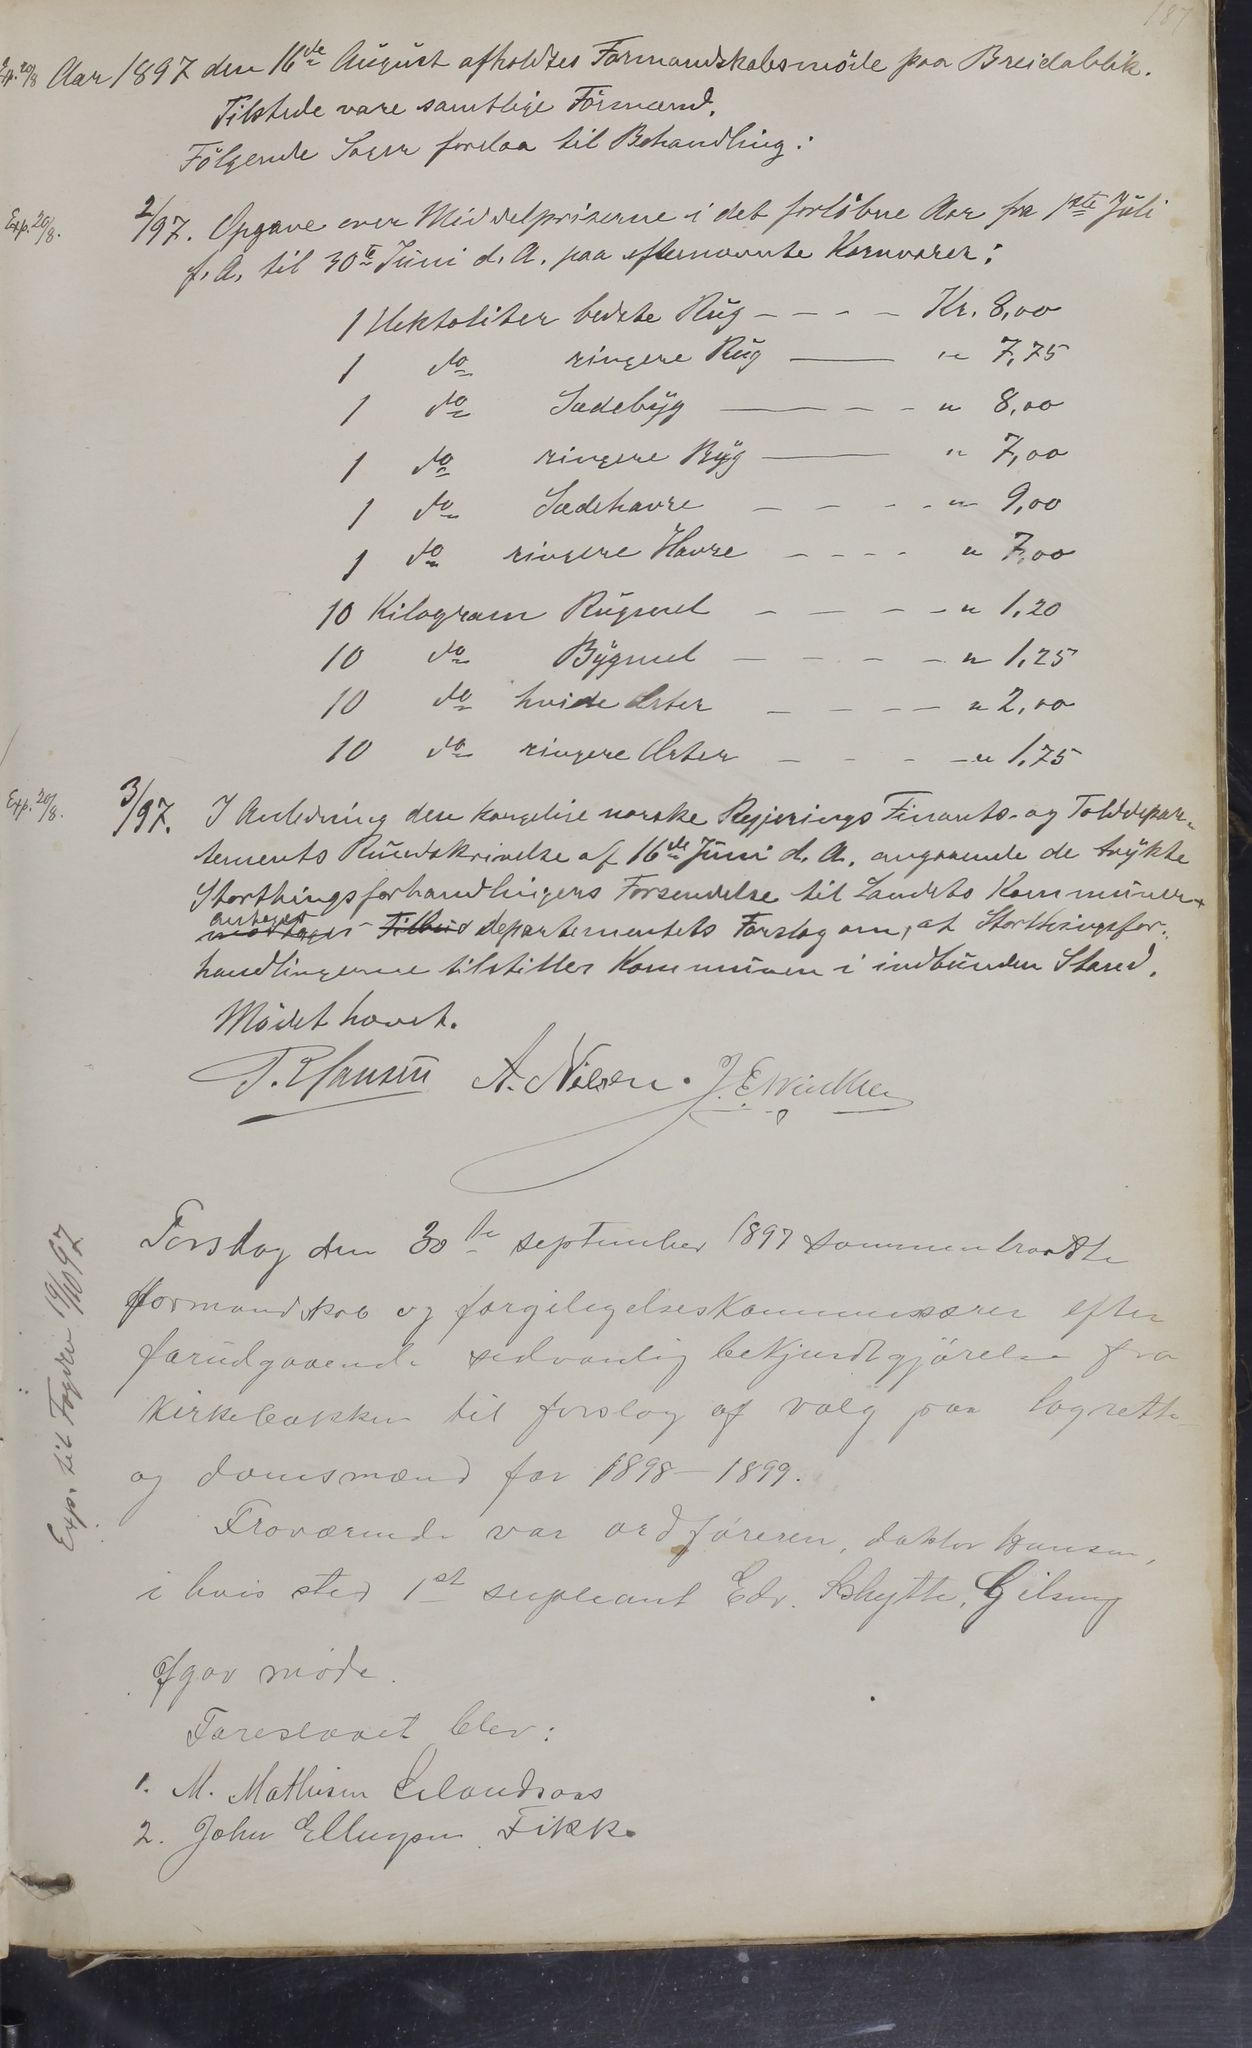 187
Exp. 20/8 Aar 1897 den 16de August afholdtes Formandskabsmöde paa Breidablik.
Tilstede vare samtlige Formænd.
Fölgende Sager forelaa til Behandling:
Exp. 20/8. 2/97. Opgave over Middelpriserne i det forlöbne Aar fra 1ste Juli
f. A. til 30te Juni d. A. paa efternævnte Kornvarer:
1 Hektoliter bedste Rug - - - - Kr. 8,00
1 do ringere Rug — " 7,75
1 do Sædebyg — - - - " 8,00
1 do ringere Byg — " 7,00
1 do Sædehavre - - - - " 9,00
1 do ringere Havre - - - - " 7,00
10 Kilogram Rugmel - - - - " 1,20
10 do Bygmel - - - - " 1,25
10 do hvide Erter - - - - " 2,00
10 do ringere Erter - - - - " 1,75
Exp. 20/8. 3/97. I Anledning den kongelige norske Regjerings Finants- og Tolddepar-
tements Rundskrivelse af 16de Juni d. A. angaaende de trykte
Storthingsforhandlingers Forsendelse til Landets Kommuner
antages
modtages Tilbud Departementets Forslag om, at Storthingsfor-
handlingerne tilstilles Kommunen i indbunden Stand.
Mödet hævet.
A. Nilsen.
Exp. til Fogden 19/10 97
Torsdag den 30te september 1897 sammentraadte
formandskab og forligelseskommissærer efter
forudgaaende sedvanlig bekjendtgjörelse fra
Kirkebakken til forslag af valg paa lagrette
og domsmænd for 1898-1899.
Fraværende var ordföreren, doktor Hansen,
i hvis sted 1st supleant Edv. Schytte,
afgav möde.
Foreslaaet blev:
1. M. Mathisen
2. John Ellingsen